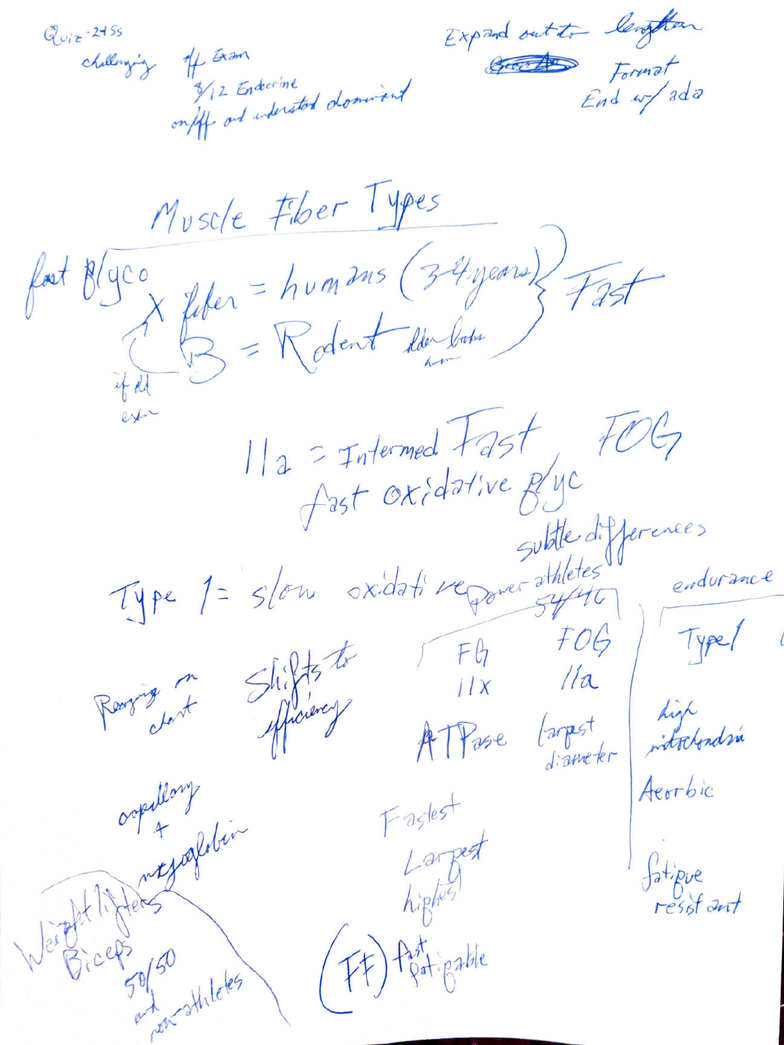 Quiz
challenging off Exam
8/12 Endocrine
on/off and understand dominant
Expand out to lengthen
Format
End w/ ada
Muscle Fiber Types
fast glyco
X fiber = humans (3-4 years)
B = Rodent
Fast
if
11a = Intermed Fast FOG
fast oxidative glyc
subtle differences
Type 1 = slow oxidative
power athletes
54/46
endurance
FG FOG
11x 11a
Type 1
Ranging on
chart
Shifts to
efficiency
ATPase largest
diameter
high
mitochondria
Aeorbic
capillary
+
myoglobin
Fastest
Largest
highest
fatigue
resistant
Weightlifters
Biceps
50/50
and
non-athletes
(FF) fast
fatigable